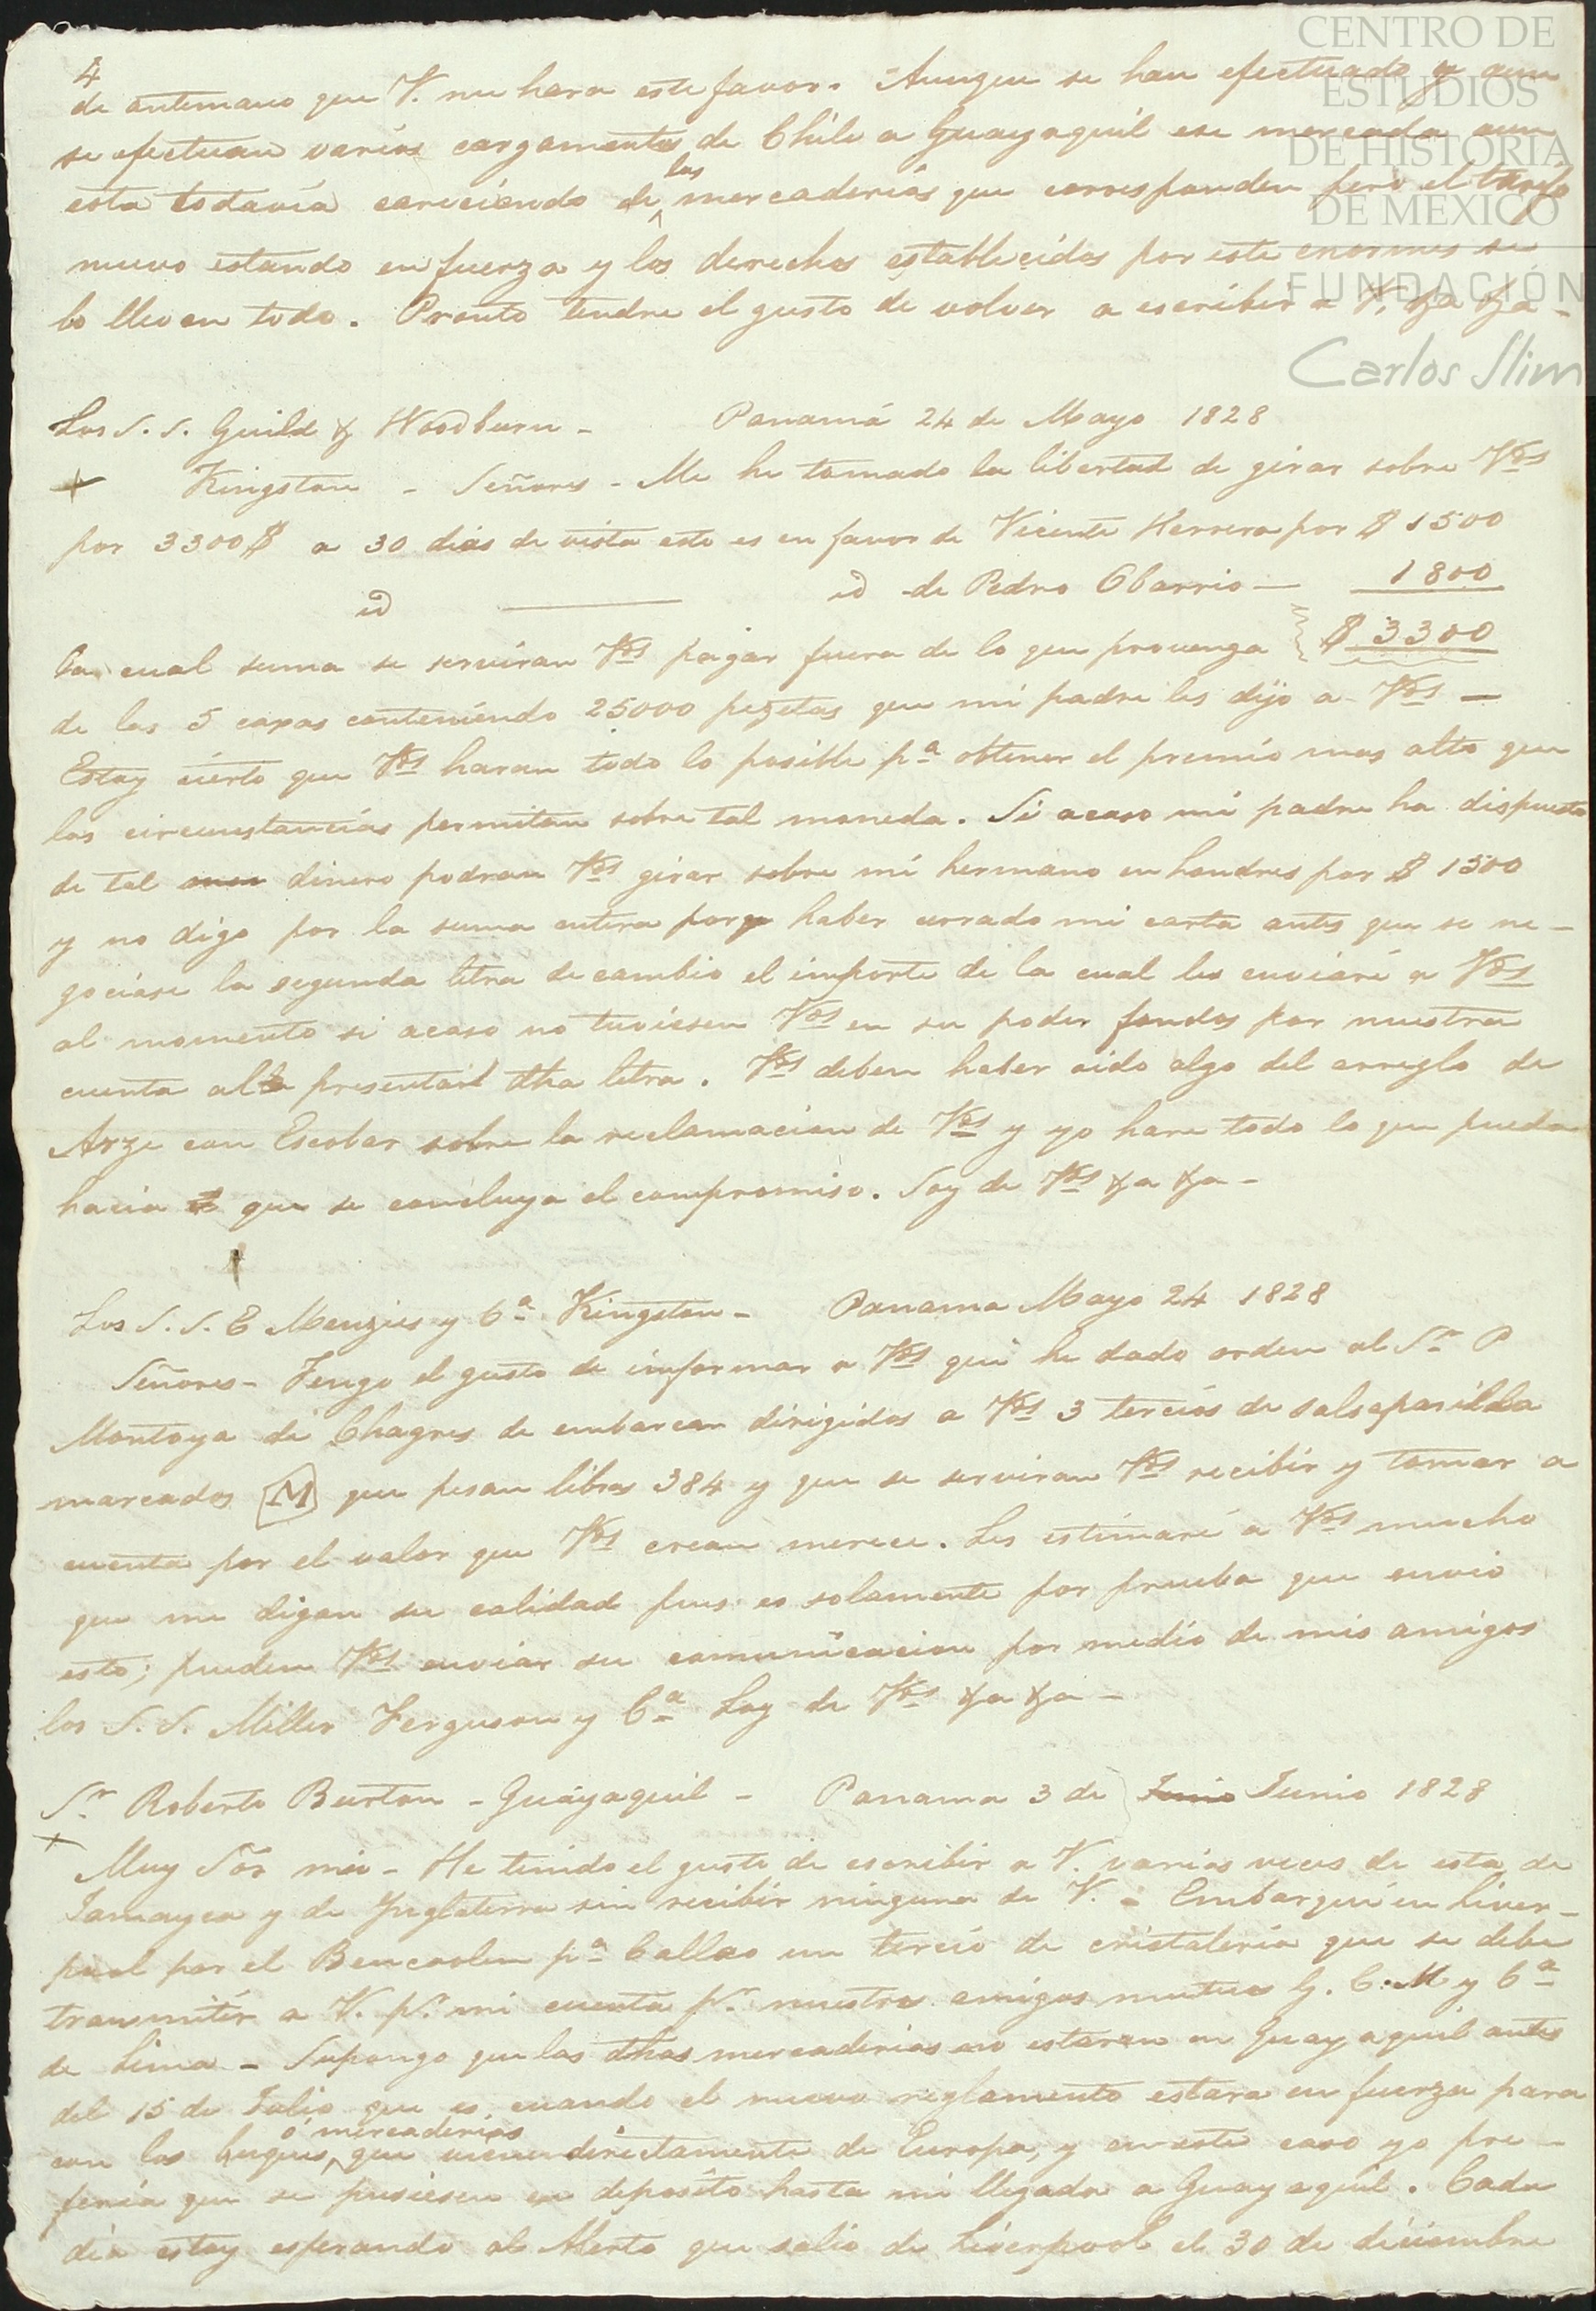 CENTRO DE
ESTUDIOS
DE HISTORIA
DE MEXICO
FUNDACIÓN
Carlos Slim
4
de antemano que V. me hara este favor. Aunque se han efectuado y aun
se efectuan varios cargamentos de Chile a Guayaquil ese mercado aun
esta todavía careciendo de las mercaderias que corresponden pero el tarifa
nuevo estando en fuerza y los derechos establecidos por este enormes se
lo lleven todo. Pronto tendre el gusto de volver a escribir a V. &a &a -
Los S. S. Guild & Woodburn - Panamá 24 de Mayo 1828
+ Kingston - Señores - Me he tomado la libertad de girar sobre Vds
por 3300$ a 30 dias de vista esto es en favor de Vicente Herrera por $ 1500
id id de Pedro Obarrio — 1800
la cual suma se serviran Vds pagar fuera de lo que provenga $ 3300
de los 5 caxas conteniendo 25000 pezetas que mi padre les dijo a Vds —
Estoy cierto que Vds haran todo lo posible pa obtener el premio mas alto que
las circunstancias permitan sobre tal moneda. Si acaso mi padre ha dispuesto
de tal dinero podran Vds girar sobre mi hermano en Londres por $ 1500
y no digo por la suma entera porq haber cerrado mi carta antes que se ne-
gociase la segunda letra de cambio el importe de la cual les enviaré a Vds
al momento si acaso no tuviesen Vds en su poder fondos por nuestra
cuenta al presentar dha letra. Vds deben haber oido algo del arreglo de
Arze con Escobar sobre la reclamacion de Vds y yo hare todo lo que pueda
hacia que se concluya el compromiso. Soy de Vds &a &a -
Los S. S. E Menzies y Ca Kingston - Panama Mayo 24 1828
Señores - Tengo el gusto de informar a Vds que he dado orden al Sr P
Montoya de Chagres de embarcar dirigidos a Vds 3 tercios de salsaparilla
marcados M que pesan libras 384 y que se serviran Vds recibir y tomar a
cuenta por el valor que Vds crean merece. Les estimaré a Vds mucho
que me digan su calidad pues es solamente por prueba que envio
esto; pueden Vds enviar su comunicacion por medio de mis amigos
los S. S. Miller Ferguson y Ca Soy de Vds &a &a -
Sr Roberto Burton - Guayaquil - Panama 3 de Junio Junio 1828
+
Muy Sor mio - He tenido el gusto de escribir a V. varias veces de esta de
Jamayca y de Inglaterra sin recibir ninguna de V. - Embarqué en Liver-
pool por el Bencoolen pa Callao un tercio de cristaleria que se debe
transmitir a V. pr mi cuenta pr nuestros amigos mutuos G. C. M y Ca
de Lima - Supongo que las dhas mercaderias no estaran en Guayaquil antes
del 15 de Julio que es cuando el nuevo reglamento estara en fuerza para
con los buques ó mercaderias que vienen directamente de Europa, y en este caso yo pre-
feria que se pusiesen en deposito hasta mi llegada a Guayaquil. Cada
dia estoy esperando al Merto que salio de Liverpool el 30 de diciembre